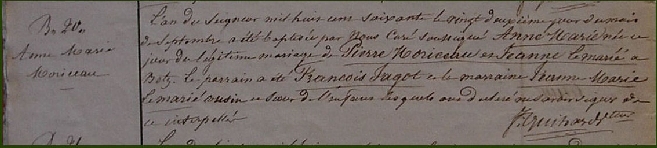 B. 20e
Anne Marie
Moriceau
L'an du Seigneur mil huit cent soixante le vingt deuxième jour du mois
de Septembre a été baptisée par Nous Curé soussigné Anne Marie née ce
jour du légitime mariage de Pierre Moriceau et Jeanne Lemarié à
Betz. Le parrain a été François Jagot et la marraine Jeanne Marie
Lemarié cousin et sœur de l'enfant lesquels ont déclaré ne savoir signer de
ce interpellés
J. Guihard